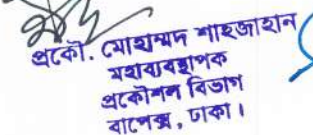 প্রকৌ. মোহাম্মদ শাহজাহান
মহাব্যবস্থাপক
প্রকৌশল বিভাগ
বাপেক্স, ঢাকা।